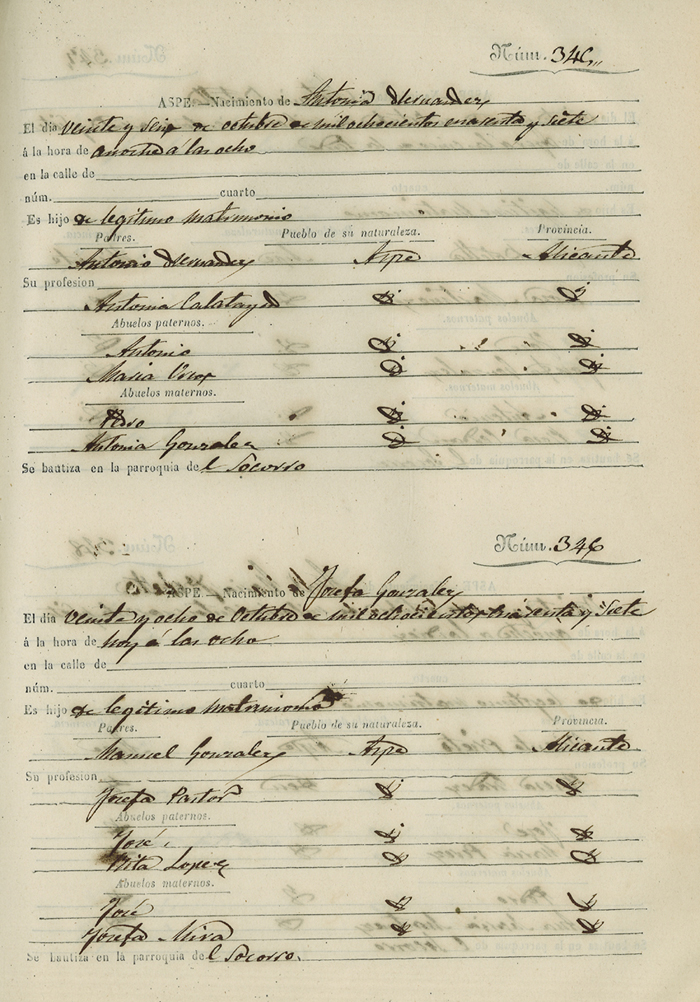 Núm. 346
ASPE.—Nacimiento de Antonia Hernandez
El dia veinte y seis de octubre de mil ochocientos cuarenta y siete
á la hora de anoche a las ocho
en la calle de
núm. cuarto
Es hijo de legitimo matrimonio
Padres. Pueblo de su naturaleza. Provincia.
Antonio Hernandez Aspe Alicante
Su profesion
Antonia Calatayud
Abuelos paternos.
Antonio
Maria
Abuelos maternos.
Pedro
Antonia Gonzalez
Se bautiza en la parroquia del Socorro
Núm. 346
ASPE.—Nacimiento de Josefa Gonzalez
El dia veinte y ocho de octubre de mil ochocientos cuarenta y siete
á la hora de hoy á las ocho
en la calle de
núm. cuarto
Es hijo de legitimo matrimonio
Padres. Pueblo de su naturaleza. Provincia.
Manuel Gonzalez Aspe Alicante
Su profesion
Josefa Pastor
Abuelos paternos.
José
Rita Lopez
Abuelos maternos.
José
Josefa Mira
Se bautiza en la parroquia del Socorro.